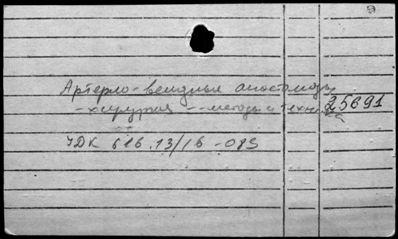 Артерио-венозные анастомозы
- хирургия -- методы и техника
25691
УДК 616.13/16-089